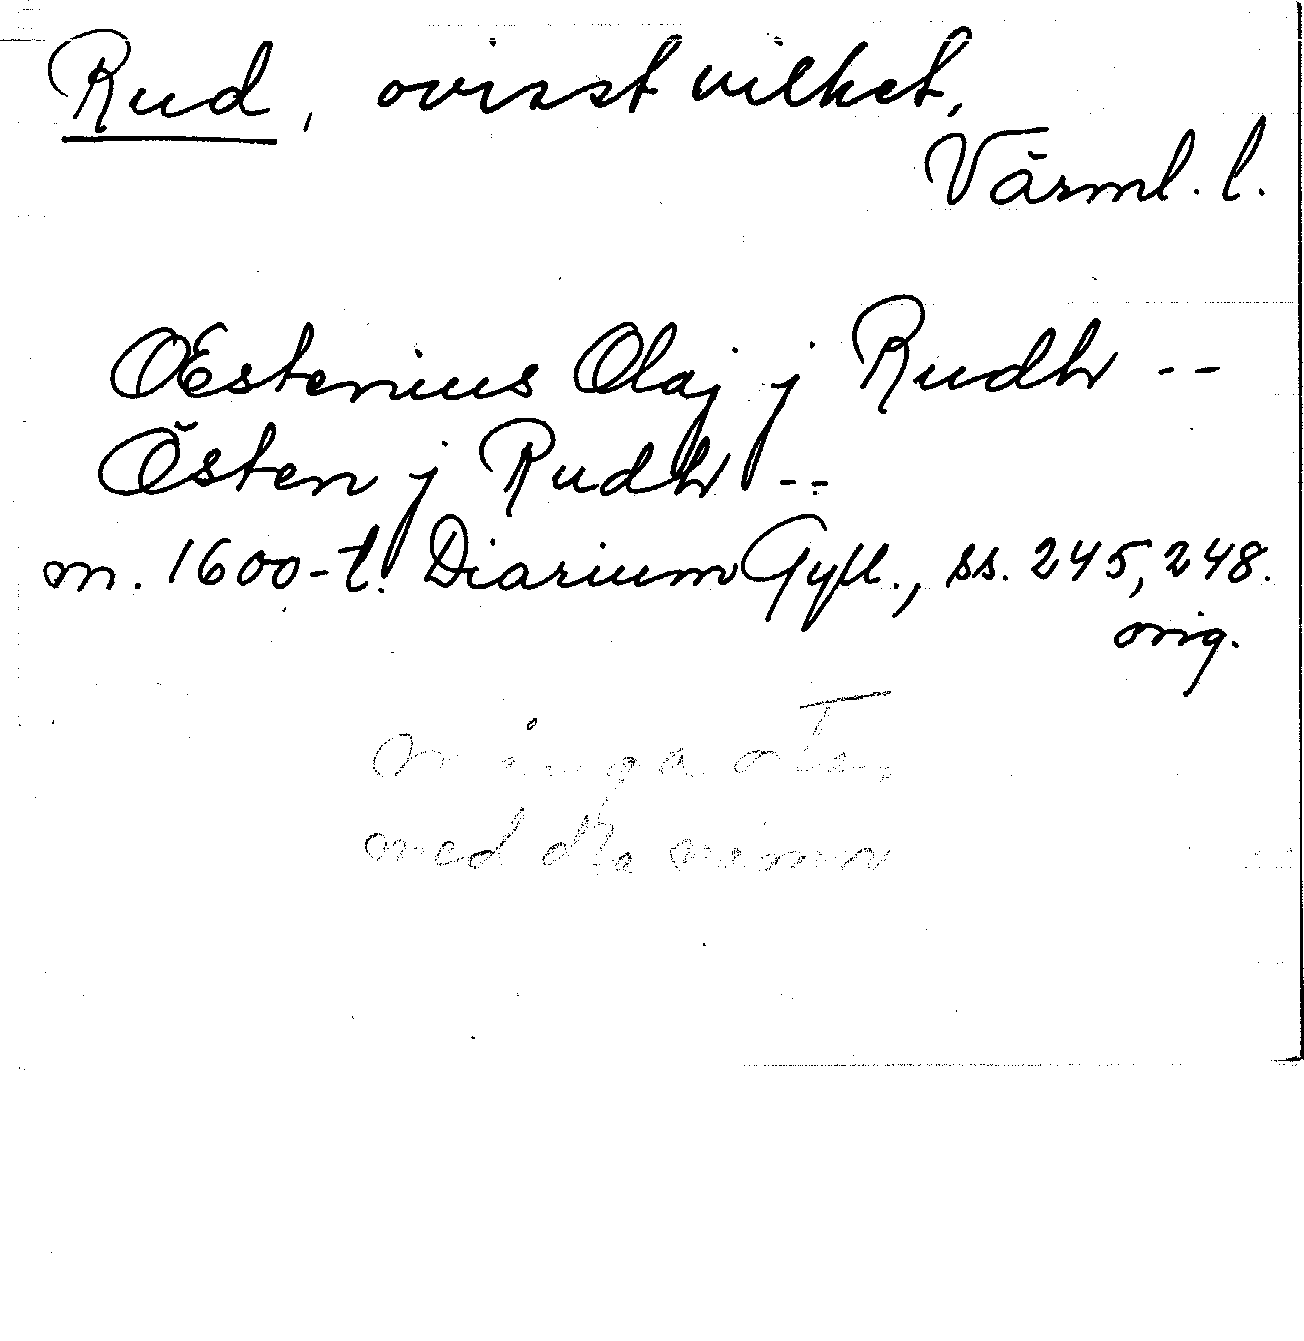 Rud, ovisst vilket,
Värml. l.
Œstenius Olaj j Rudh --
Östen j Rudh --
m. 1600-t. Diarium Gyll., ss. 245, 248.
orig.
många
med dta namn